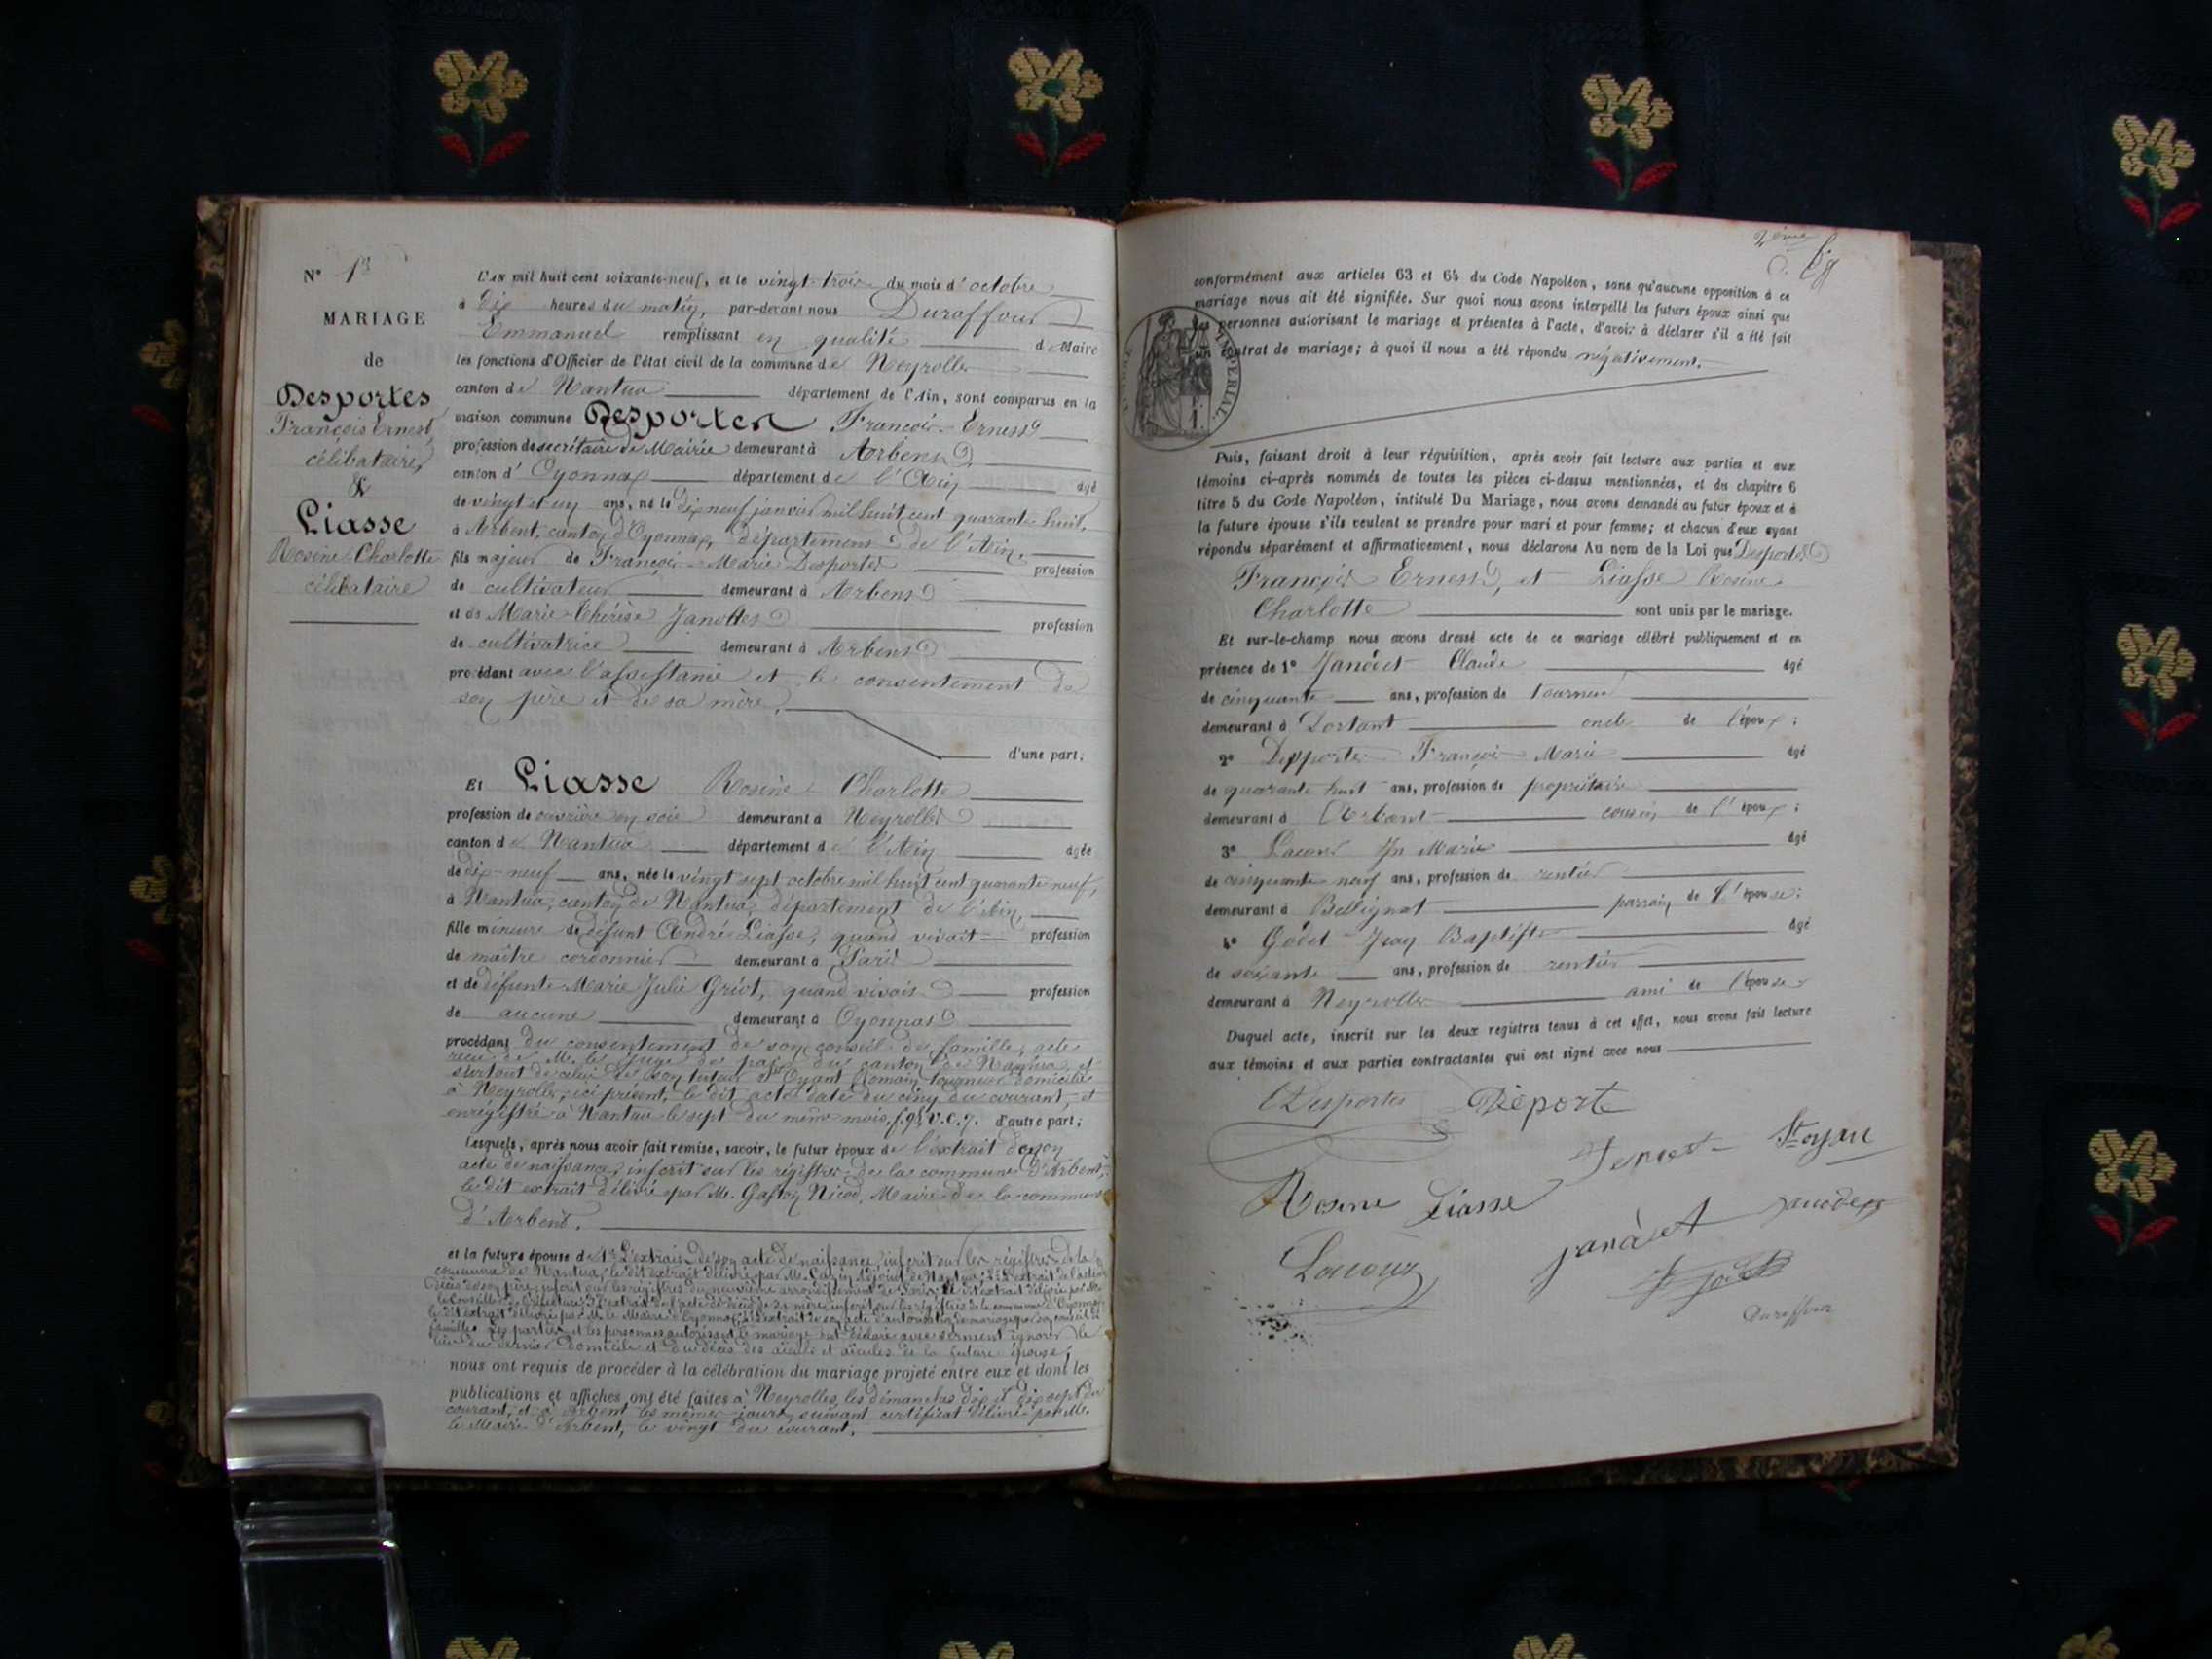 N° 1er
MARIAGE
de
Desportes
François Ernest
célibataire,
&
Liasse
Rosine-Charlotte
célibataire
L'an mil huit cent soixante-neuf, et le vingt trois du mois d'octobre
à dix heures du matin, par-devant nous Duraffour
Emmanuel remplissant en qualité de Maire
les fonctions d'Officier de l'état civil de la commune de Neyrolles
canton de Nantua département de l'Ain, sont comparus en la
maison commune Desportes François-Ernest
profession de secrétaire de Mairie demeurant à Arbent
canton d'Oyonnax département de l'Ain âgé
de vingt et un ans, né le dix neuf janvier mil huit cent quarante huit,
à Arbent, canton d'Oyonnax, département de l'Ain,
fils majeur de François-Marie Desportes profession
de cultivateur demeurant à Arbent
et de Marie-Thérèse profession
de cultivatrice demeurant à Arbent
procédant avec l'assistance et le consentement de
son père et de sa mère,
d'une part;
Et Liasse Rosine Charlotte
profession de ouvrière en soie demeurant à Neyrolles
canton de Nantua département de l'Ain âgée
de dix-neuf ans, née le vingt sept octobre mil huit cent quarante neuf,
à Nantua, canton de Nantua, département de l'Ain,
fille mineure de défunt André Liasse, quand vivait profession
de maître cordonnier demeurant à Paris
et de défunte Marie Julie Griot, quand vivait profession
de aucune demeurant à Oyonnax
procédant du consentement de son conseil de famille, acte
reçu de M. le Juge de paix du canton de Nantua, et
surtout de celui de son tuteur St Oyant Romain tourneur domicilié
à Neyrolles, ici présent, le dit acte daté du cinq du courant, et
enregistré à Nantua le sept du même mois, f. 98 V. C. 7. d'autre part;
Lesquels, après nous avoir fait remise, savoir, le futur époux de l'extrait de son
acte de naissance, inscrit sur les régistres de la commune d'Arbent,
le dit extrait délivré par M. Gaston Nicod, Maire de la commune
d'Arbent.
et la future épouse de 1° L'extrait de son acte de naissance, inscrit sur les régistres de la
commune de Nantua, le dit extrait délivré par M. adjoint de Nantua; 2° L'extrait de l'acte de
décès de son père, inscrit sur les régistres du neuvième arrondissement de Paris, le dit extrait délivré par M.
le Conseiller de Préfecture; 3° l'extrait de l'acte de décès de sa mère, inscrit sur les régistres de la commune d'Oyonnax
le dit extrait délivré par M. le Maire d'Oyonnax; 4° L'extrait de son acte d'autorisation de mariage par son conseil de
famille. Les parties et les personnes autorisant le mariage ont déclaré avec serment ignorer le
lieu du dernier domicile et du décès des aïeuls et aïeules de la future épouse;
nous ont requis de procéder à la célébration du mariage projeté entre eux et dont les
publications et affiches ont été faites à Neyrolles les dimanches dix et dix sept du
courant, et à Arbent les mêmes jours, suivant certificat délivré par M.
le Maire d'Arbent, le vingt du courant.
2ème
conformément aux articles 63 et 64 du Code Napoléon, sans qu'aucune opposition à ce
mariage nous ait été signifiée. Sur quoi nous avons interpellé les futurs époux ainsi que
les personnes autorisant le mariage et présentes à l'acte, d'avoir à déclarer s'il a été fait
un contrat de mariage; à quoi il nous a été répondu négativement.
TIMBRE IMPERIAL
Puis, faisant droit à leur réquisition, après avoir fait lecture aux parties et aux
témoins ci-après nommés de toutes les pièces ci-dessus mentionnées, et du chapitre 6
titre 5 du Code Napoléon, intitulé Du Mariage, nous avons demandé au futur époux et à
la future épouse s'ils veulent se prendre pour mari et pour femme; et chacun d'eux ayant
répondu séparément et affirmativement, nous déclarons Au nom de la Loi que Desportes
François Ernest, et Liasse Rosine
Charlotte sont unis par le mariage.
Et sur-le-champ nous avons dressé acte de ce mariage célébré publiquement et en
présence de 1° Claude âgé
de cinquante ans, profession de Tourneur
demeurant à Dortant oncle de l'époux;
2° Desportes François Marie âgé
de quarante huit ans, profession de propriétaire
demeurant à Arbent cousin de l'époux;
3° Lacour Jn Marie âgé
de cinquante neuf ans, profession de rentier
demeurant à Bellignat parrain de l'épouse;
4° Godet Jean Baptiste âgé
de soixante ans, profession de rentier
demeurant à Neyrolles ami de l'épouse
Duquel acte, inscrit sur les deux registres tenus à cet effet, nous avons fait lecture
aux témoins et aux parties contractantes qui ont signé avec nous
EDesportes Déporte
St oyan
Rosine Liasse
janàet
Lacour
Duraffour